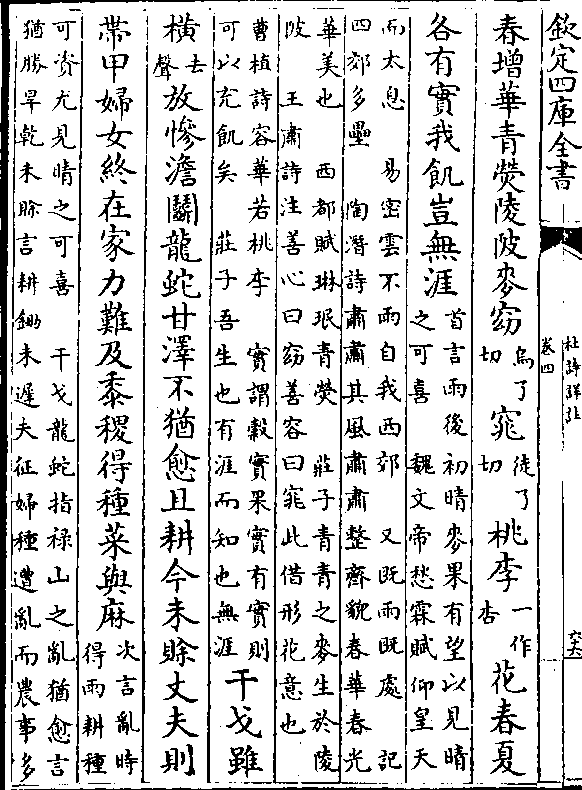 欽定四庫全書
杜詩詳註
卷四
春增華青熒陵陂麥窈烏了切窕徒了切桃李一作杏花春夏
各有實我飢豈無涯
首言雨後初晴麥果有望以見晴
之可喜 魏文帝愁霖賦仰皇天
而太息 易密雲不雨自我西郊 又既雨既處 記
四郊多壘 陶潛詩肅肅其風肅肅整齊貌春華春光
華美也 西都賦琳珉青熒 莊子青青之麥生於陵
陂 王肅詩注善心曰窈善容曰窕此借形花意也
曹植詩容華若桃李 實謂穀實果實有實則
可以充飢矣 莊子吾生也有涯而知也無涯
干戈雖
橫去聲放慘澹鬭龍蛇甘澤不猶愈且耕今未賒丈夫則
帶甲婦女終在家力難及黍稷得種菜與麻
次言亂時
得雨耕種
可資尤見晴之可喜 干戈龍蛇指祿山之亂猶愈言
猶勝旱乾未賒言耕鋤未遲夫征婦種遭亂而農事多